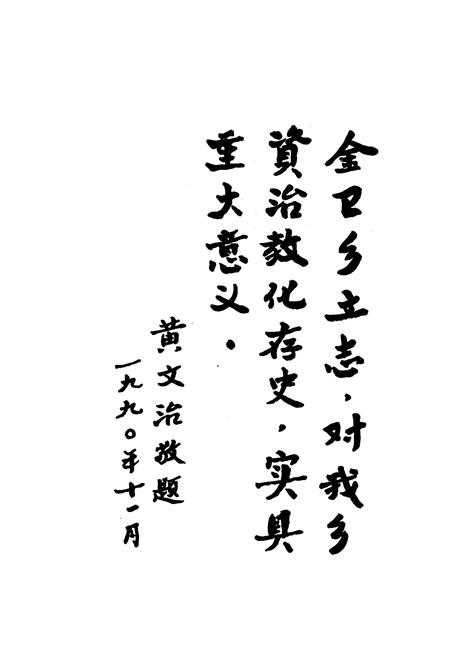 金卫乡立志，对我乡
資治教化存史，实具
重大意义．
黄文治敬题
一九九〇年十一月